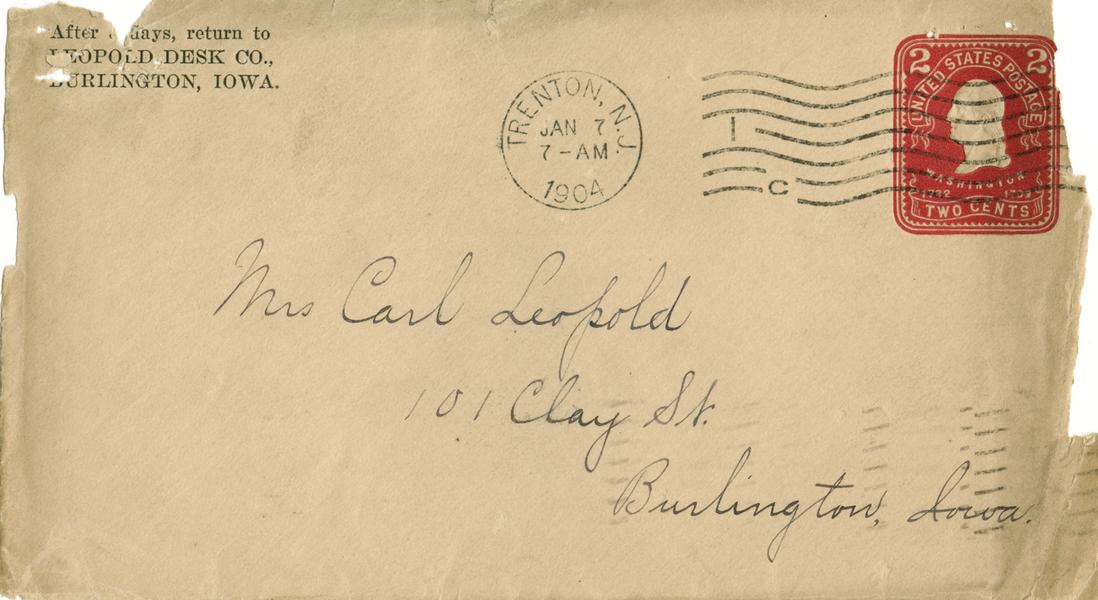 After days, return to
LEOPOLD DESK CO.,
BURLINGTON, IOWA.
TRENTON, N.J.
JAN 7
7-AM
1904
1
C
2 UNITED STATES POSTAGE 2
WASHINGTON
1732 1799
TWO CENTS
Mrs Carl Leopold
101 Clay St.
Burlington, Iowa.